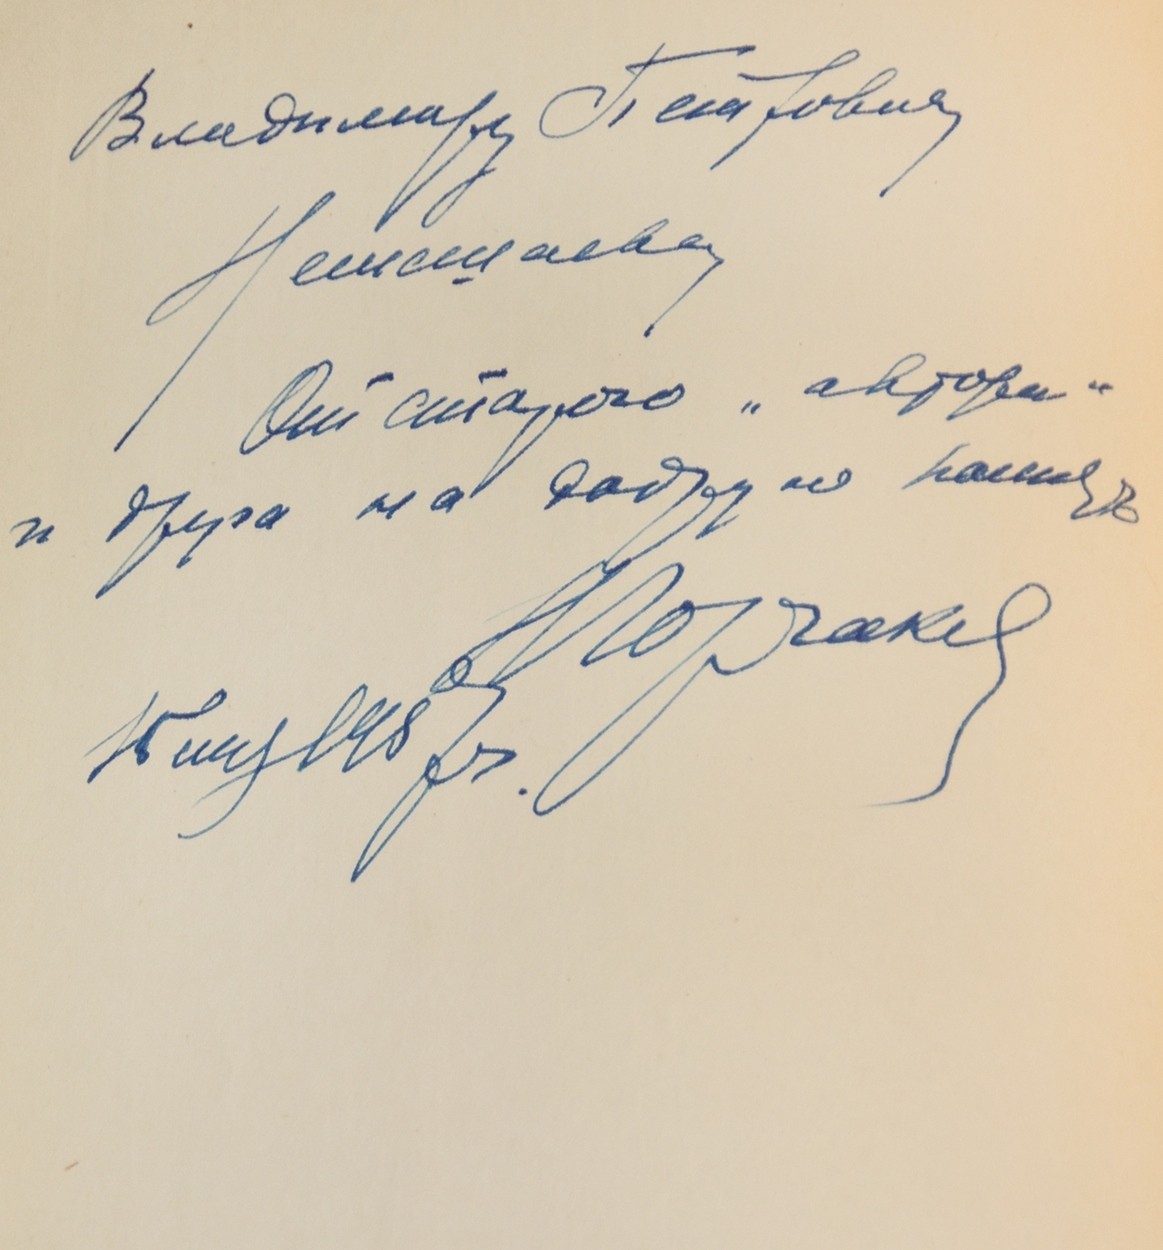 Владимиру Петровичу
От старого „автора“
и друга на добрую память
Н Горчаков
15 1948 г.